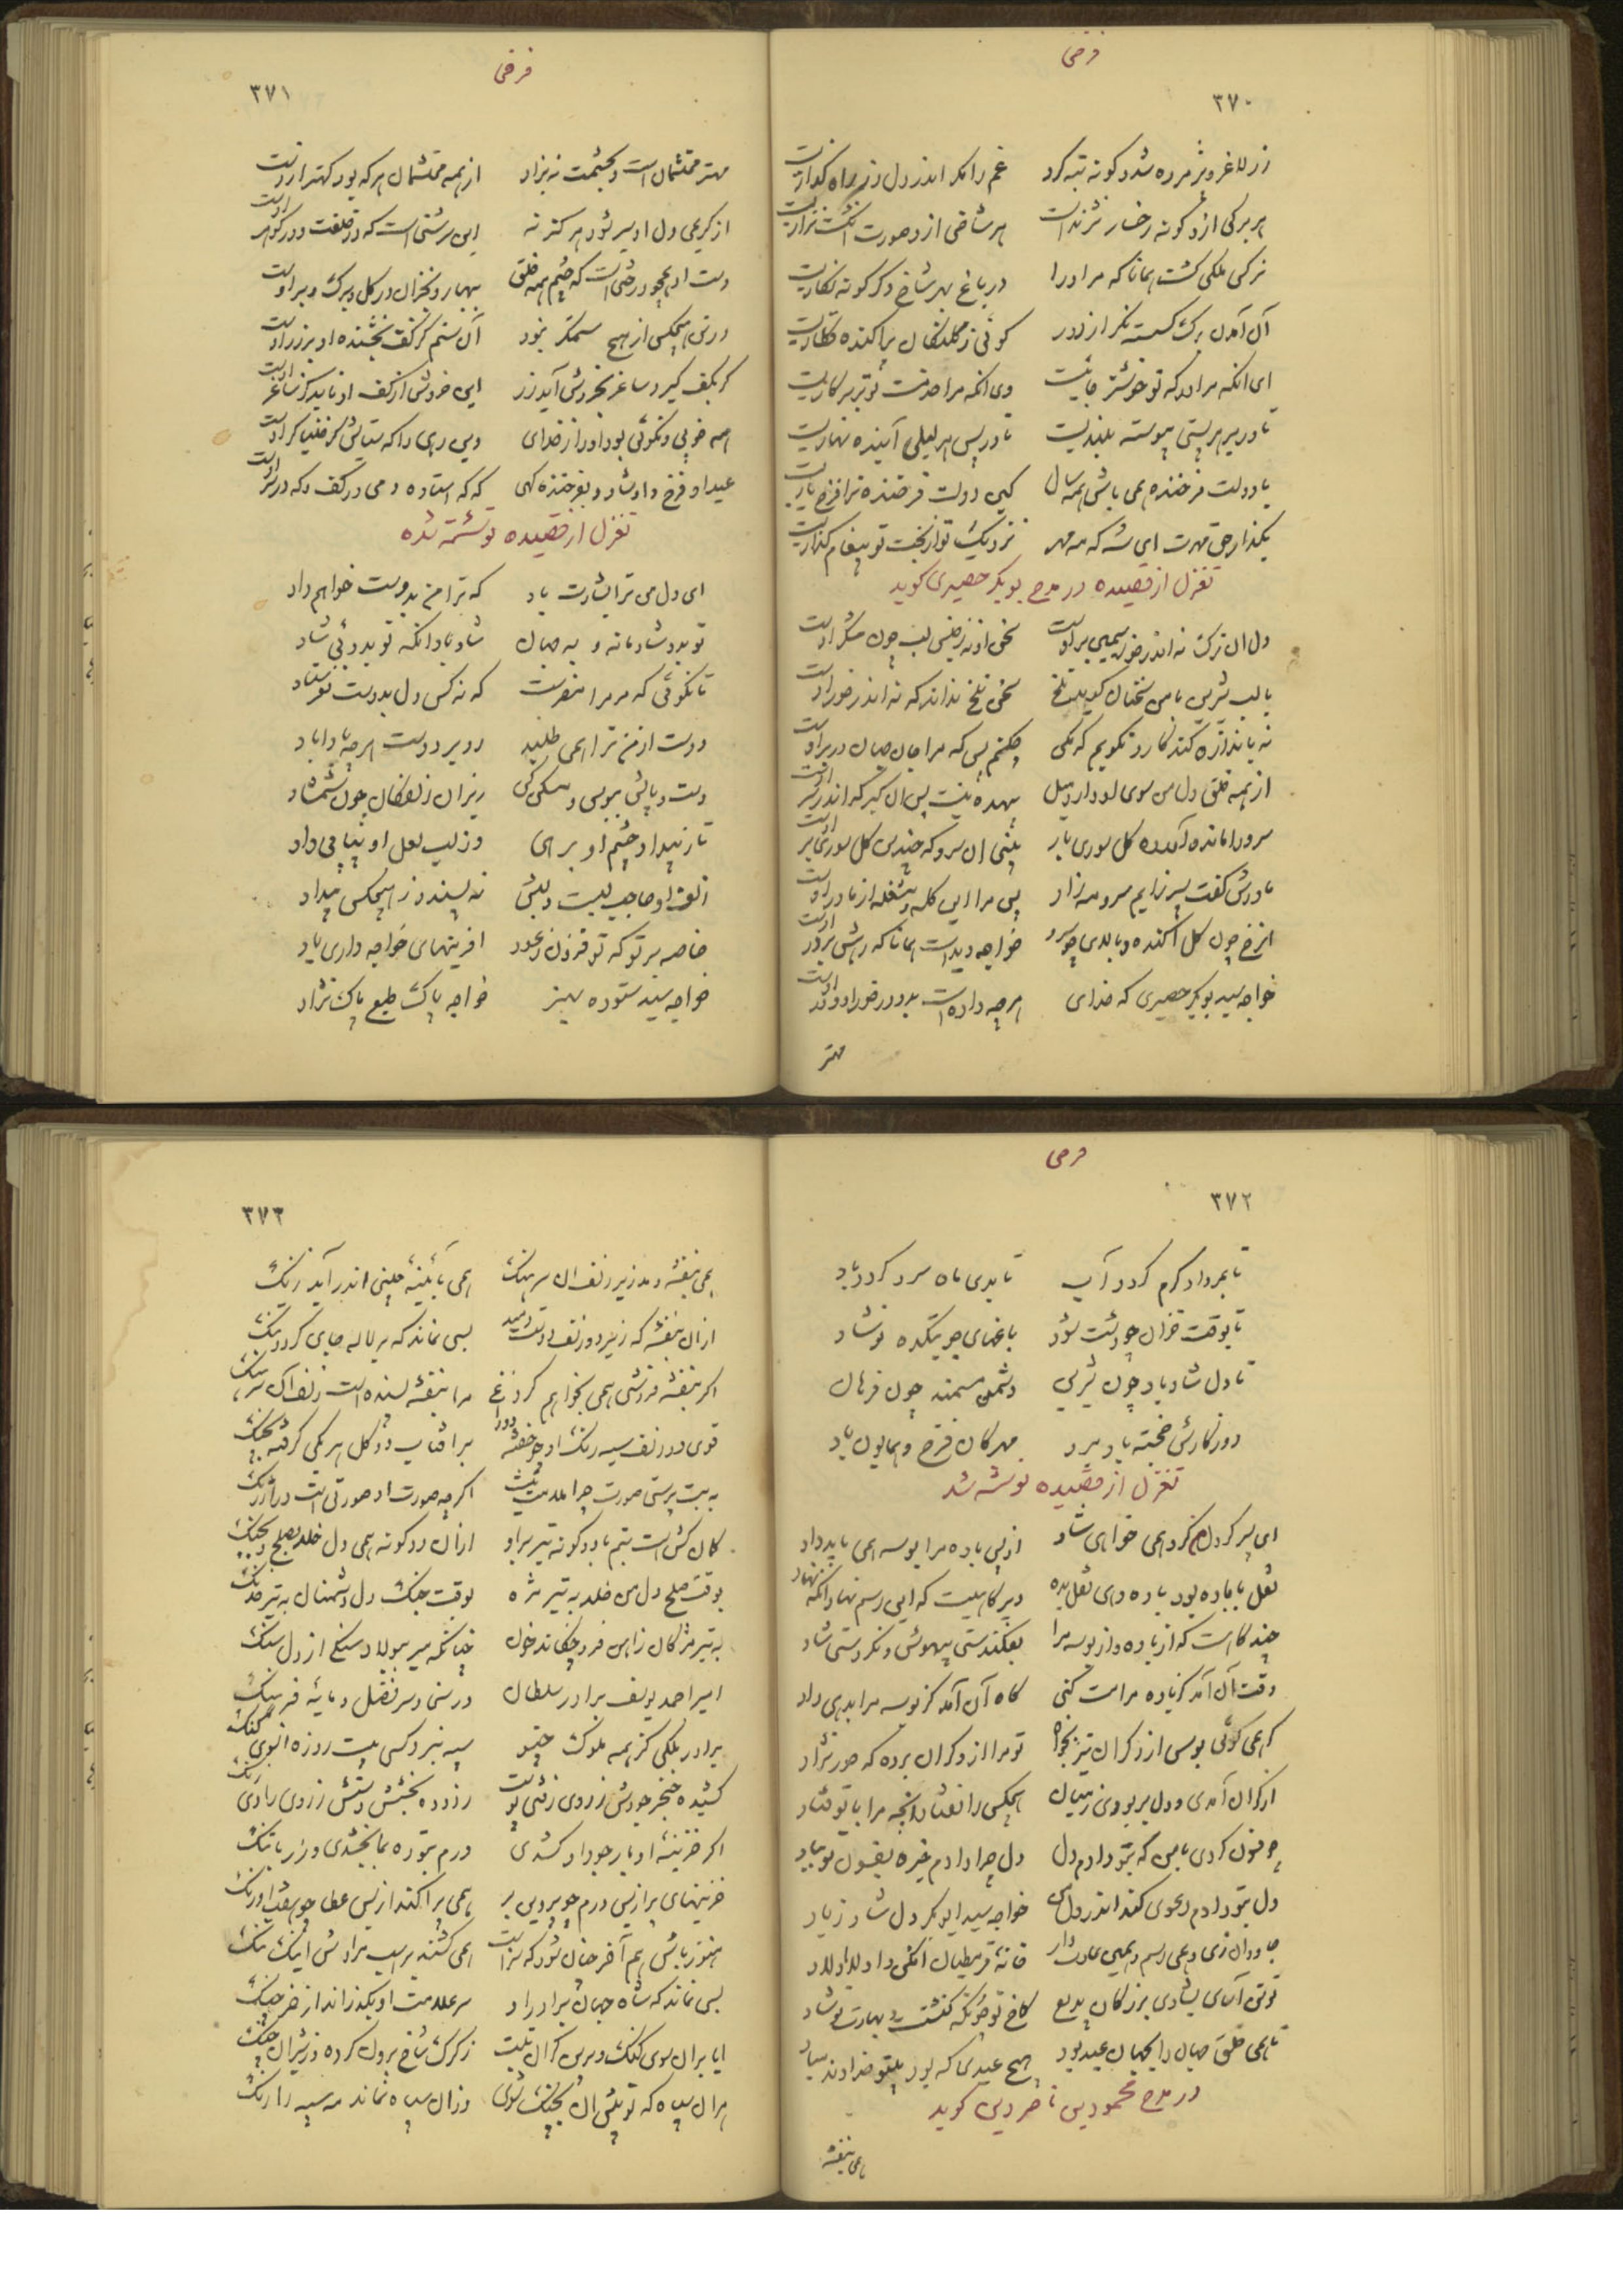 فرخی
۳۷۰
زر لاغر و پژمرده شد و گونه تبه کرد غم را مگر اندر دل زر راه گذارست
بر برگی ازو گونه رخسار نژندست هر شاخی ازو صورت انگشت نزارست
نرگس ملکی گشت همانا که مر او را در باغ بهر شاخ دگرگونه نثارست
آن آمدن برگ گسسته نگر از دور گوئی ز کلنگان پراکنده قطارست
ای آنکه مرا درگه تو خوشتر جائیست وی آنکه مرا خدمت تو برتر کارست
تا در بر هر پستی پیوسته بلندیست تا در پس هر لیلی آینده نهارست
با دولت فرخنده همی باشی همه سال کین دولت فرخنده ترا فرخ یارست
بگذار حق مهرت ای شه که مه مهر نزدیک تو از بخت تو پیغام گذارست
تغزل از قصیده در مدح بوبکر حصیری گوید
دل ان ترک نه اندر خور سیمین بر اوست سخن او نه ز جنس لب چون شکر اوست
با لب شرین با من سخنان گوید تلخ سخن تلخ نداند که نه اندر خور اوست
نه باندازه کند کار و نگویم که مکن چکنم پس که مرا جان جهان در بر اوست
از همه خلق دل من سوی او دارد میل بیهده نیست پس ان کبر که اندر سر اوست
سرو را مانده آورده گل سوری بار بینی ان سرو که چندین گل سوری بر اوست
مادرش گفت پسر زایم سرو و مه زاد پس مرا این گله و مشغله از مادر اوست
انرخ چون گل اکنده و بالای چو سرو خواجه دیدست همانا که رهی بر در اوست
خواجه سید بوبکر حصیری که خدای هرچه داده است بدو در خور او و در اوست
مهتر
فرخی
۳۷۱
مهتر محتشمان است و بحشمت نه بزاد از همه محتشمان هرکه بود کهتر اوست
از کریمی دل او سیر نشود هرگز نه این سرشتی است که در خلقت و در گوهر اوست
دست او همچو درختی است که چشم همه خلق ببهار و بخزان در گل و برگ و بر اوست
در تن هیچکس از هیچ ستمگر نبود آن ستم کز کف بخشنده او بر زر اوست
گر بکف گیرد ساغر بخروش آید زر این خروش از کف او باید کز ساغر اوست
همه خوبی و نکوئی بود او را ز خدای وین رهی را که ستایشگر خنیاگر اوست
عید او فرخ و او شاد و بفرخنده گهی که که استاده و می در کف و که در بر اوست
تغزل از قصیده نوشته شده
ای دل من ترا بشارت باد که ترا من بدوست خواهم داد
تو بدو شادمانه و به جهان شاد باد آنکه تو بدوئی شاد
تا نگوئی که مر مرا مفرست که نه کس دل بدوست نفرستاد
دوست از من ترا همی طلبد رو بر دوست هرچه بادا باد
دست و پایش ببوس و مسکن کن زیر ان زلفکان چون شمشاد
تا ز بیداد چشم او برهی وز لب لعل او بیابی داد
زلف او حاجب لبست و لبش نه پسندد ز هیچکس بیداد
خاصه بر تو که تو فزون ز عدد افرینهای خواجه داری یاد
خواجه سید ستوده سیر خواجه پاک طبع پاک نژاد
فرخی
۳۷۲
تا بمرداد گرم گردد آب تا بدی ماه سرد گردد باد
تا بوقت خزان چو دشت شود باغهای چو بتکده نوشاد
تا دل شاد باد چون شرین دشمن مستمند چون فرهاد
روزگارش خجسته باد برد مهرگان فرخ و همایون باد
تغزل از قصیده نوشته شد
ای پسر گر دل من کرد همی خواهی شاد از پس باده مرا بوسه همی باید داد
نقل با باده بود باده دهی نقل بده دیر گاهیست که این رسم نهاد آنکه نهاد
چند گاهست که از باده و از بوسه مرا نفکندستی بیهوش و نکردستی شاد
وقت آن آمد کز باده مرا مست کنی گاه آن آمد کز بوسه مرا بدهی داد
گر همی گوئی بوس از دگران نیز بخواه تو مرا از دگران برده که حور نژاد
از کران آمدی و دل بربودی ز میان هیچکس را نفتاد انچه مرا با تو فتاد
چه فسون کردی با من که بتو دادم دل دل چرا دادم خیره بفسون تو بباد
دل بتو دادم دعوی کند اندر دل من خواجه سید ابوبکر دل شاد زیاد
جاودان زی و همی رسم و همین عادت دار خانه قرمطیان افکن و داد
تو تن آسای بشادی بزرگان بدیع کاخ تو چونکه کنشت و بهارت نوشاد
تا همی خلق جهان را بجهان عید بود هیچ عیدی که بود بیتو خداوند مباد
در مدح محمود بن ناصر دین گوید
همی بنفشه
۳۷۳
همی بنفشه دمد زیر زلف ان سرهنگ همی بآئینه چینی اندر آید زنگ
ازان بنفشه که زیر دو زلف دوست دمید بسی نماند که بر لاله جای گردد تنگ
اگر بنفشه فروشی همی نخواهم کرد مرا بنفشه بسنده است زلف آن سرهنگ
قوی دو زلف سیه رنگ او چو خفته دو زاغ بر افتاب دو گل هر یکی گرفته بچنگ
به بت پرستی صورت چرا ملامت نیست اگرچه صورت او صورتی است در ارژنگ
کمان کش است بتم با دو گونه تیر بر او ازان دو گونه همی دل خلد بصلح و بجنگ
بوقت صلح دل من خلد به تیر مژه بوقت جنگ دل دشمنان به تیر خدنگ
به تیر مژگان زاهن فرو چکاند خون چنانکه میر بپولاد سنگ از دل سنگ
امیر احمد یوسف برادر سلطان در سخا و سر فضل و مایه فرهنگ
برادر ملکی کز همه ملوک سیه نبرد کسی
کشیده خنجر چون زدوده بخشش
اگر خزینه او بار جود او کشدی درم بتوده ببخشدی و زر با تنگ
خزینهای پر از بس درم چو پروین بر همی پراکند از بس عطا چو هفت اورنگ
هنوز باش هم آخر چنان شود که سزاست همی کشند بر اسب مرادش اینک تنگ
بسی نماند که شاه جهان برادر را سر علامت او بگذراند از خرچنگ
ایا بران سوی گنگ و برین کران ز کرگ شاخ برون کرده و ز شیران چنگ
هر ان سپاه که تو پیش ان بجنگ شوی وزان سپاه نماند مه سپه را رنگ